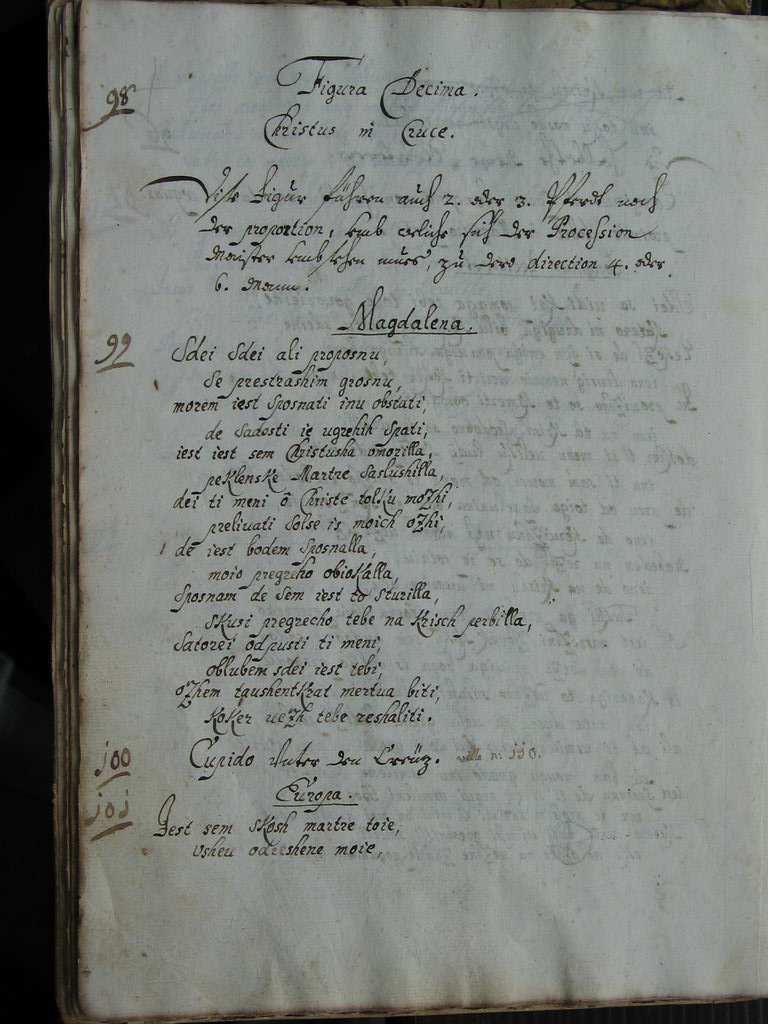 98
Figura Decima.
Christus in Cruce.
Dise Figur führen auch 2. oder 3. Pferdt nach
der proportion, umb welche sich der Procession
Maister umbsehen mues, zu dero direction 4. oder
6. Mann.
Magdalena.
99
Sdei Sdei ali proposnu,
Se prestrashim grosnu,
morem iest Sposnati inu obstati,
de Sadosti ie ugrehih Spati,
iest iest sem Christusha vmorilla,
peklenske Martre Saslushilla,
dei ti meni ô Christe tolku mozhi,
prelivati Solse is moich ozhi,
de iest bodem Sposnalla,
moio pregreho obiokalla,
Sposnam de Sem iest to Sturilla,
skusi pregrecho tebe na Krisch perbilla,
Satorei odpusti ti meni,
oblubem sdei iest tebi,
ozhem taushentkrat mertua biti,
koker uezh tebe reshaliti.
100
Cupido unter den Creüz. vide n: 110.
Europa.
101
Iest sem skosh martre toie,
Vsheu odreshene moie,